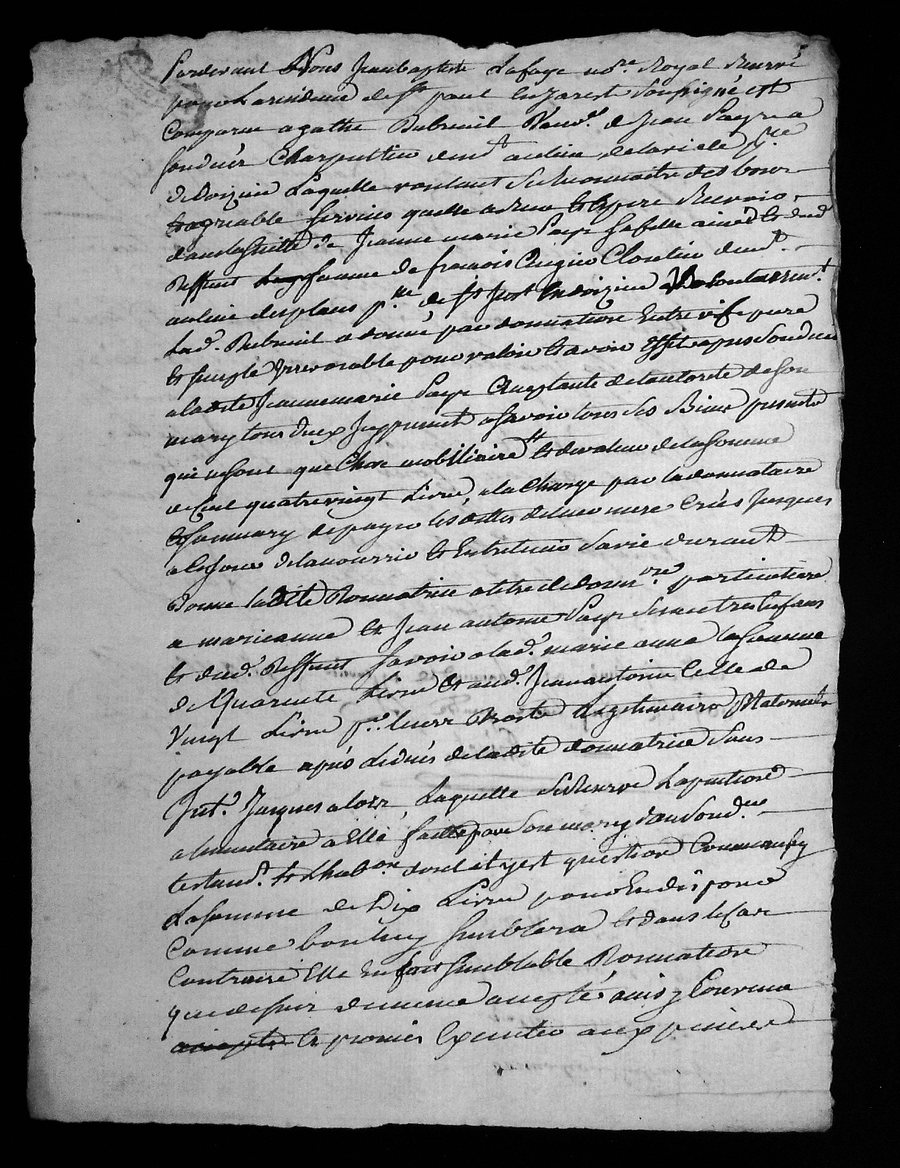 Pardevant Nous Jean baptiste Lafaye no.re Royal Reservé
pour La residence de St paul Lizarest Soussigné est
Comparue agathe Dubreuil Veuve de Jean Paye a
Charpentier au lieu de
de doizieu Laquelle voulant Reconnoitre des bons
et agreable Services quelle a Reçu et Espere Recevoir
dans la suitte de Jeanne marie Paye sa fille ainée et dud
Deffunt femme de francois Cloutier dem.t
au lieu des plaus p.sse de St Just en doizieu Volontairem.t
Lad. Dubreuil a donné par donnation Entre vif pure
et simple Irrevocable pour valoir et avoir Effet apres son deces
a ladite Jeannemarie Paye acceptante de l'autorite de Son
mary tous deux Icy present a Savoir tous Ses Biens presents
qui ne sont que Chose mobiliaire et de valeur de la Somme
de Cent quatre vingt Livre, a la Charge par la donnataire
et Son mary de payer les dettes de leur mere Crées Jusques
a ce Jour de la nourrir et Entretenir Sa vie durant
donne ladite Donnatrice a titre de donn.on particuliere
a marieanne et Jean antoine Paye Ses autres Enfans
et dud. Deffunt Savoir a lad. marie anne la Somme
de Quarante Livre et aud. Jean antoine Celle de
Vingt Livre p.r leurs Droits Legitimaires Maternels
payable après le deces de ladite donnatrice Sans
Int.t Jusques alors, Laquelle Se Reserve La pension
alimentaire a Elle par Son mary dans Son d.er
testam.t dont il y est question Comm aussy
La Somme de Dix Livre pour En disposer
Comme bon luy Semblera et dans le Cas
Contraire Elle En fait Semblable Donnation
que dessus de meme accepté ainsy Convenu
accepté et promis Executer aux peines